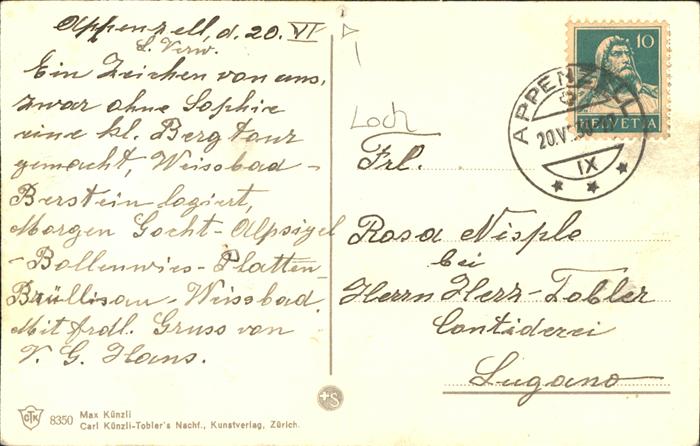 Appenzell, d. 20. VI
L. Verw.
Ein Zeichen von uns,
zwar ohne Sophie
eine kl. Bergtour
gemacht, Weissbad -
Berstein logiert,
Morgen Gocht - Alpsigel
- Bollenwies - Platten
Brüllisau - Weissbad.
Mit frdl. Gruss von
V. G. Hans.
CTK
8350
Max Künzli
Carl Künzli-Tobler's Nachf., Kunstverlag, Zürich.
+S
Loch
10
HELVETIA
APPENZELL
20.V
IX
Frl.
Rosa Nisple
bei
Herrn Herz-Tobler
Contiderei
Lugano